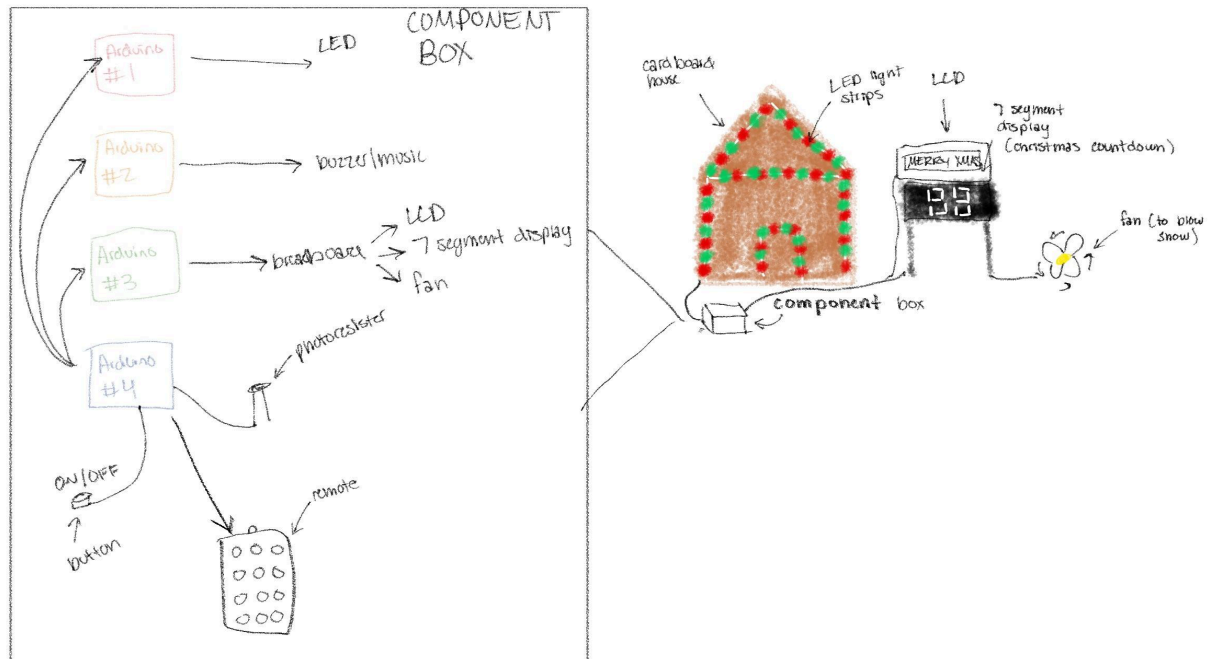 COMPONENT
BOX
Arduino
#1
LED
Arduino
#2
buzzer/music
Arduino
#3
breadboard
LCD
7 segment display
fan
Arduino
#4
photoresister
ON/OFF
button
remote
cardboard
house
LED light
strips
LCD
7 segment
display
(christmas countdown)
MERRY XMAS
fan (to blow
snow)
component box